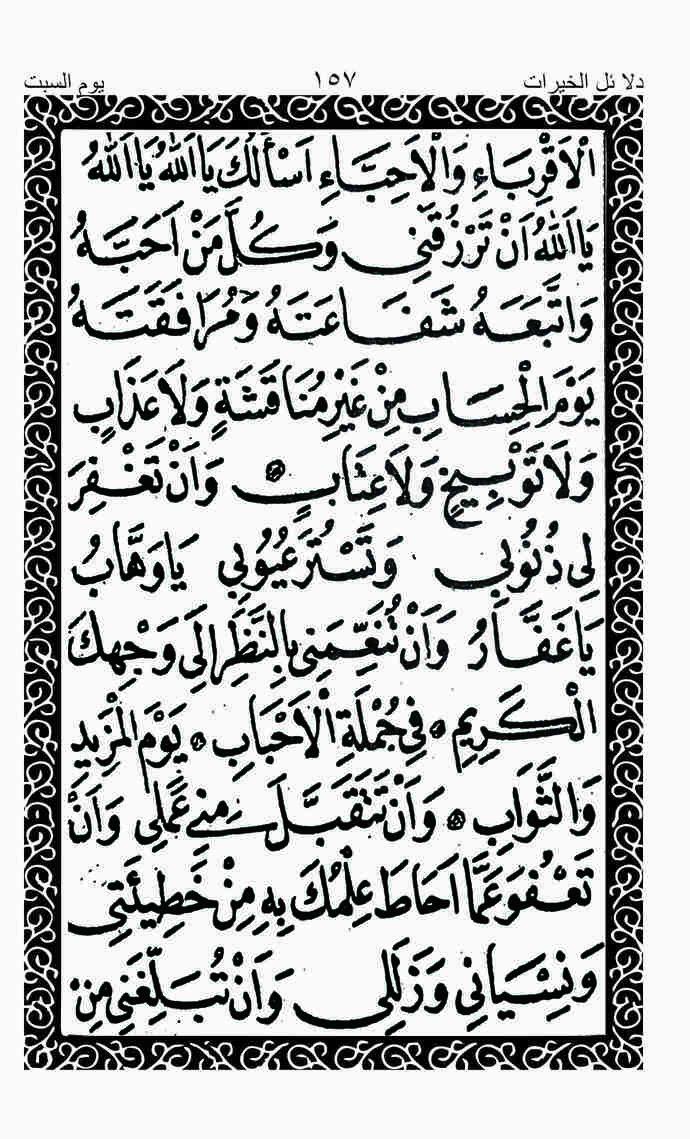 دلائل الخيرات ١٥٧ يوم السبت
الْاَقْرِبَاءِ وَالْاَحِبَّاءِ اَسْأَلُكَ يَا اَللّٰهُ يَا اَللّٰهُ
يَا اَللّٰهُ اَنْ تَرْزُقَنِي وَكُلَّ مَنْ اَحَبَّهُ
وَاتَّبَعَهُ شَفَاعَتَهُ وَمُرَافَقَتَهُ
يَوْمَ الْحِسَابِ مِنْ غَيْرِ مُنَاقَشَةٍ وَلَا عَذَابٍ
وَلَا تَوْبِيخٍ وَلَا عِتَابٍ ۞ وَاَنْ تَغْفِرَ
لِي ذُنُوبِي وَتَسْتُرَ عُيُوبِي يَا وَهَّابُ
يَا غَفَّارُ وَاَنْ تُنَعِّمَنِي بِالنَّظَرِ اِلَى وَجْهِكَ
الْكَرِيمِ ۞ فِي جُمْلَةِ الْاَحْبَابِ ۞ يَوْمَ الْمَزِيدِ
وَالثَّوَابِ ۞ وَاَنْ تَتَقَبَّلَ مِنِّي عَمَلِي وَاَنْ
تَعْفُوَ عَمَّا اَحَاطَ عِلْمُكَ بِهِ مِنْ خَطِيئَتِي
وَنِسْيَانِي وَزَلَلِي وَاَنْ تُبَلِّغَنِي مِنْ